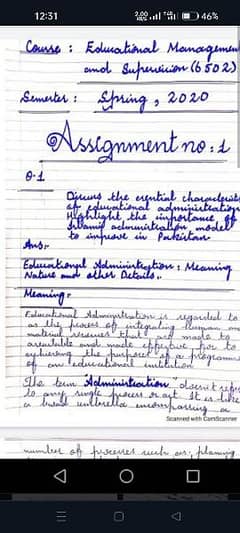 12:31
2.00
46%
Course : Educational Managemen
and Supervision (6502)
Semester : Spring, 2020
Assignment no : 1
Q.1
Discuss the essential characterist
of educational administration
Highlight the importance of
Islamic administration model
to improve in Pakistan.
Ans:-
Educational Administration : Meaning
Nature and other Details.
Meaning:-
Educational Administration is regarded to
as the process of integrating human
material resources that are made to
available and made effective for to
achieving the purposes of a programme
of an educational institution
The term Administration doesn't refer
to any single process or act. It is like
a broad umbrella encompassing a
Scanned with CamScanner
number of processes such as; planning